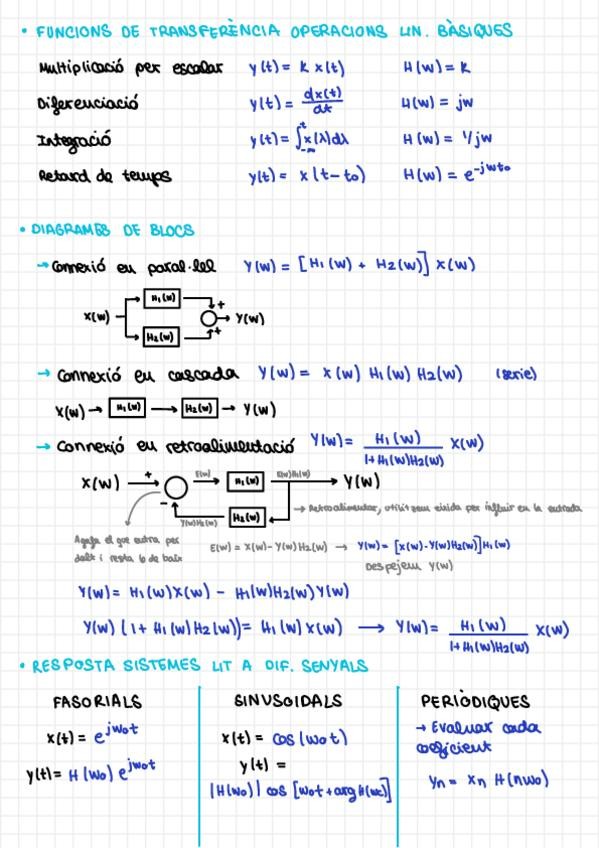 • FUNCIONS DE TRANSFERÈNCIA OPERACIONS LIN. BÀSIQUES
Multiplicació per escalar y(t) = k x(t) H(w) = k
Diferenciació y(t) = dx(t)/dt H(w) = jw
Integració y(t) = ∫_{-∞}^{t} x(λ)dλ H(w) = 1/jw
Retard de temps y(t) = x(t-t₀) H(w) = e^{-jwt₀}
• DIAGRAMES DE BLOCS
→ Connexió en paral·lel Y(w) = [H₁(w) + H₂(w)] X(w)
H₁(w) +
X(w) Y(w)
H₂(w) +
→ Connexió en cascada Y(w) = X(w) H₁(w) H₂(w) (serie)
X(w) → H₁(w) → H₂(w) → Y(w)
→ Connexió en retroalimentació Y(w) = H₁(w)/1+H₁(w)H₂(w) X(w)
X(w) + E(w) H₁(w) E(w)H₁(w) Y(w)
- Y(w)H₂(w) H₂(w) → Retroalimentar, utilitzem eixida per influir en la entrada
Agafa el que entra per
dalt i resta lo de baix
E(w) = X(w) - Y(w)H₂(w) → Y(w) = [X(w)-Y(w)H₂(w)]H₁(w)
Despejem Y(w)
Y(w) = H₁(w)X(w) - H₁(w)H₂(w)Y(w)
Y(w) (1+ H₁(w)H₂(w)) = H₁(w)X(w) → Y(w) = H₁(w)/1+H₁(w)H₂(w) X(w)
• RESPOSTA SISTEMES LIT A DIF. SENYALS
FASORIALS
x(t) = e^{jw₀t}
y(t) = H(w₀) e^{jw₀t}
SINUSOIDALS
x(t) = cos(w₀t)
y(t) =
|H(w₀)| cos [w₀t + arg H(w₀)]
PERIÒDIQUES
→ Evaluar cada
coeficient
Yn = Xn H(nw₀)